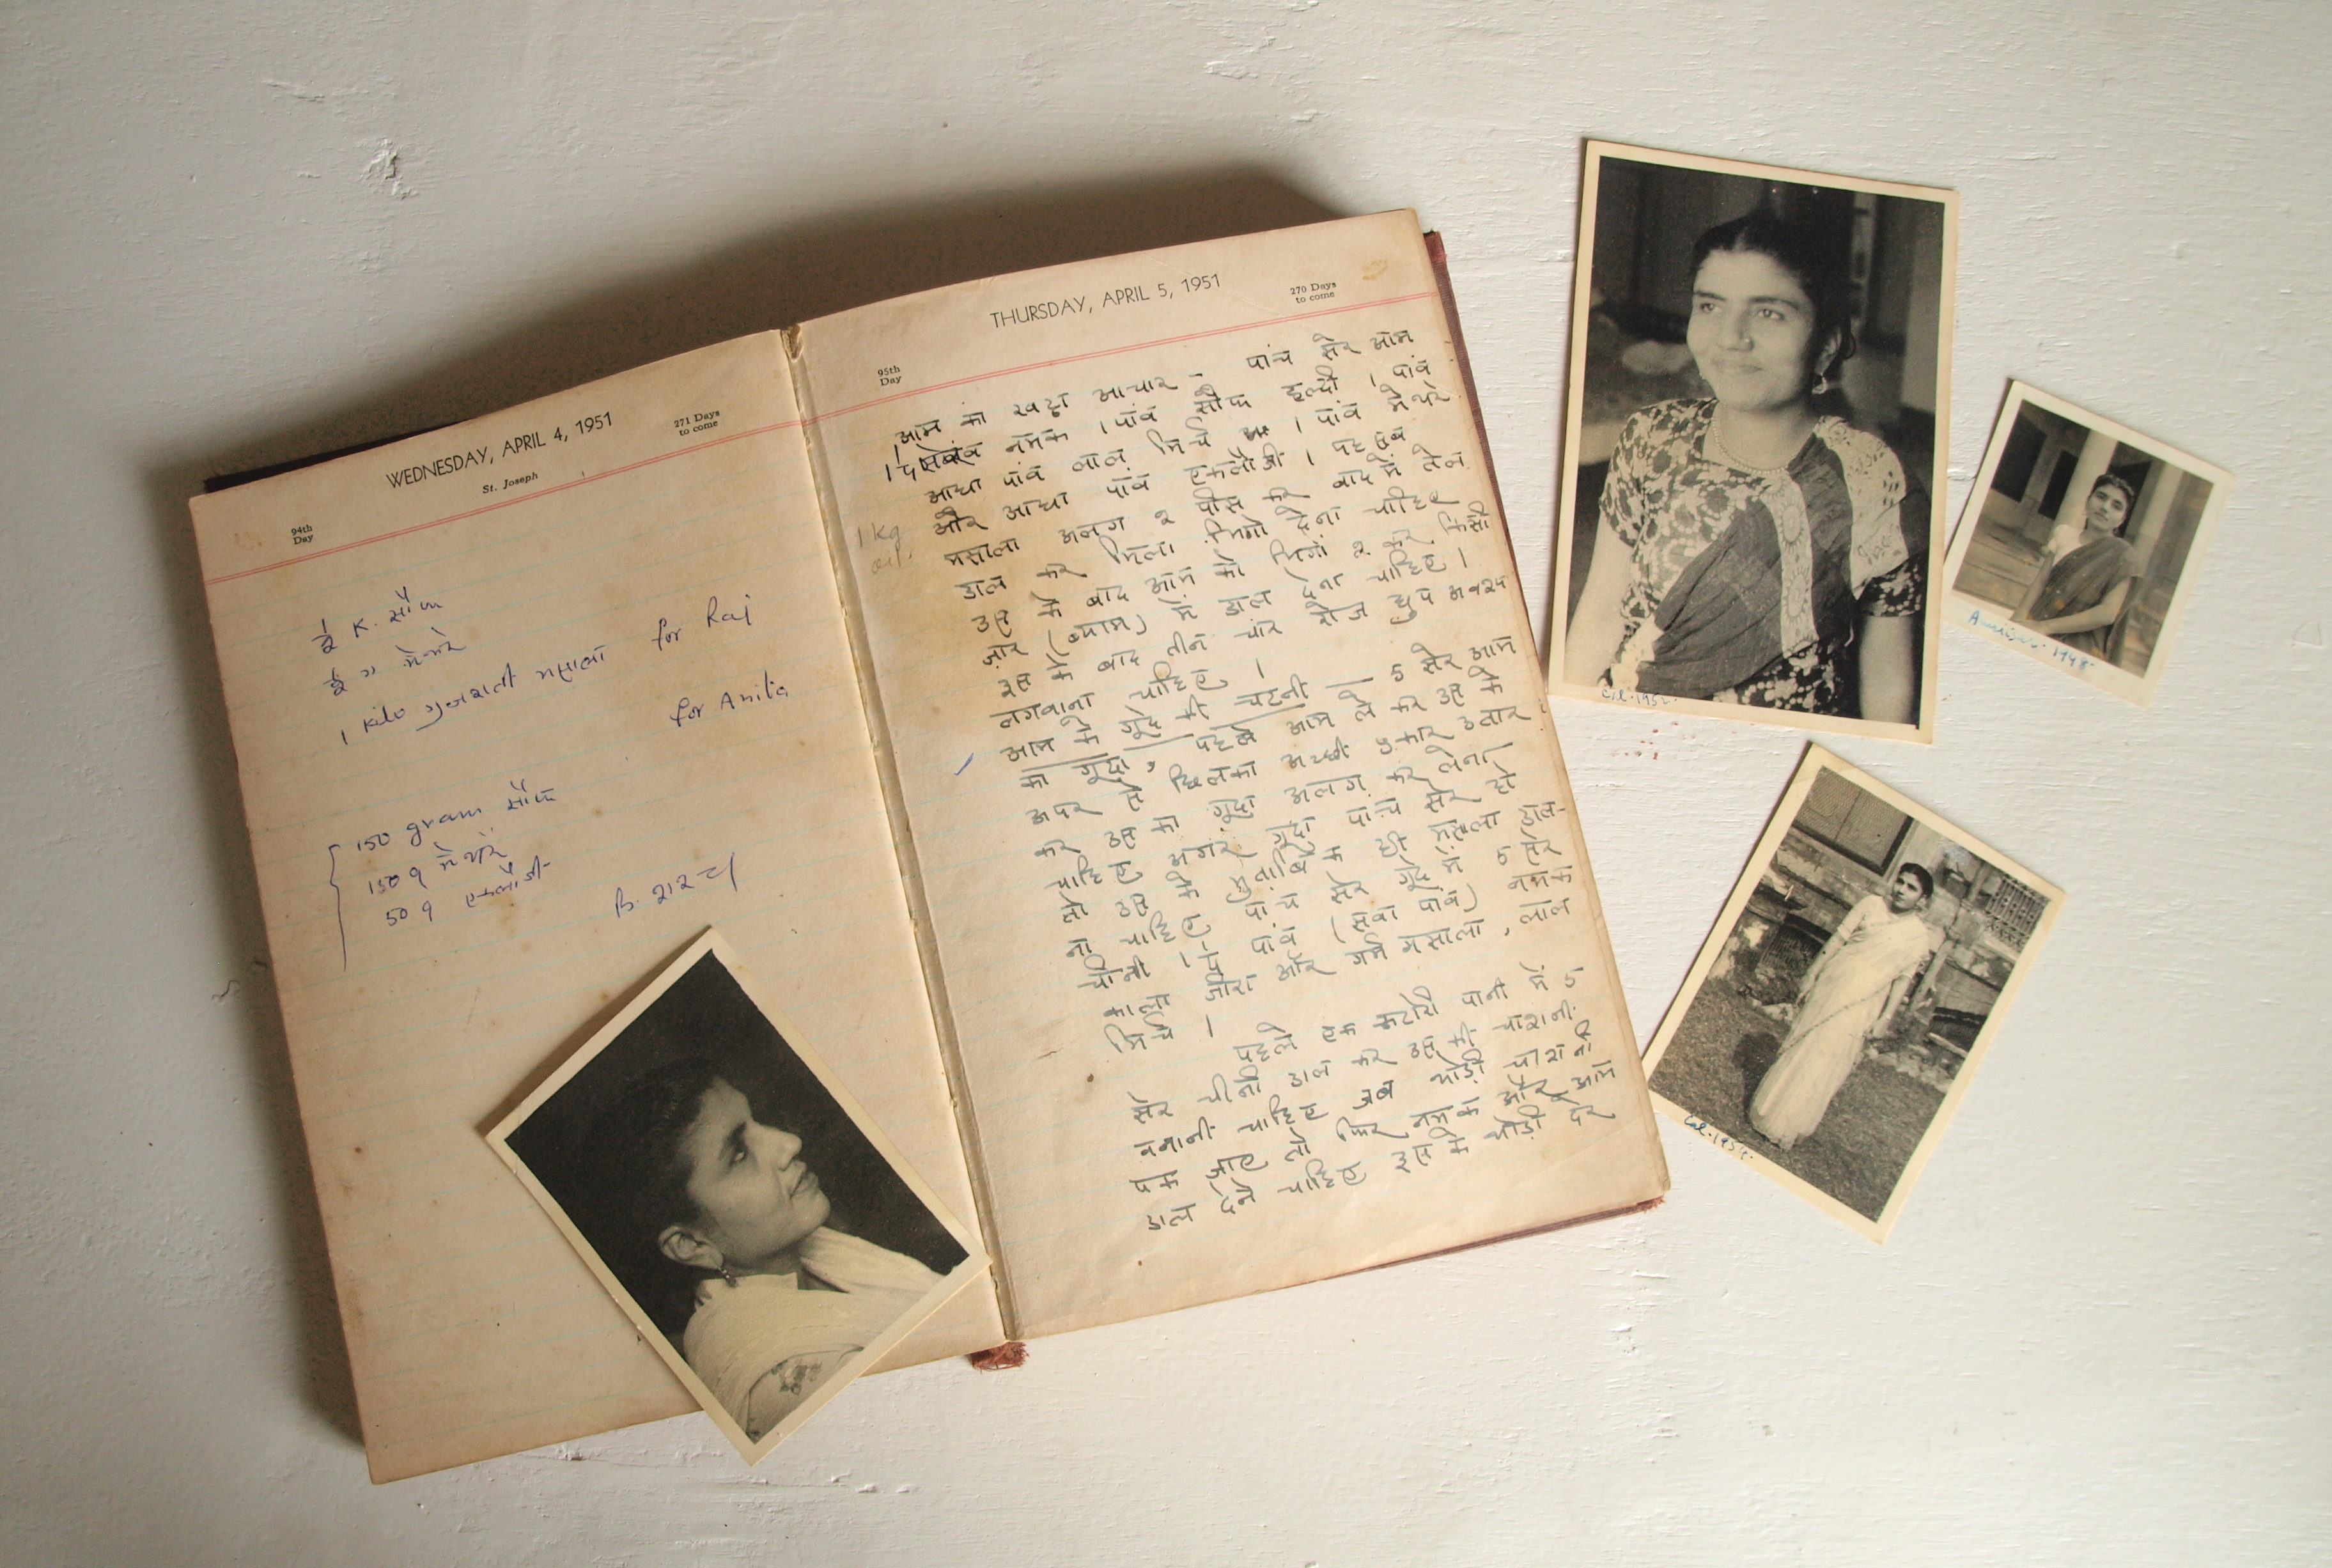 WEDNESDAY, APRIL 4, 1951
271 Days
to come
St. Joseph
94th
Day
1/2 K. सौंफ
1/2 " मेथरे
1 kilo गुजराती मसाला for Raj
for Anita
150 gram सौंफ
150 g मेथरे
50 g कलौंजी
THURSDAY, APRIL 5, 1951
270 Days
to come
95th
Day
आम का खट्टा आचार - पांच सेर आम
1 पाव नमक 1 पांव सौंफ हल्दी 1 पांव
आधा पांव लाल मिर्च 1 पांव मेथरे
और आधा पांव कलौंजी । यह सब
मसाला अलग २ पीस कर बाद में तेल
1 kg
oil.
डाल कर मिला भिगो देना चाहिए
उस के बाद आम को भिगो २ कर किसी
जार (ब्याम) में डाल देना चाहिए ।
इस के बाद तीन चार रोज धुप अवश्य
लगवाना चाहिए ।
आम के गूदे की चटनी । 5 सेर आम
का गूदा, पहले आम ले कर उस के
अपर से छिलका अच्छी प्रकार उतार
कर उस का गूदा अलग कर लेना
चाहिए अगर गूदा पांच सेर हो
तो उस के मुताबिक ही मसाला डाल-
ना चाहिए पांच सेर गूदे में 5 सेर
चीनी 1-1/4 पांव (सवा पांव) नमक
काला जीरा और गर्म मसाला, लाल
मिर्च ।
पहले एक कटोरी पानी में 5
सेर चीनी डाल कर उस की चाशनी
बनानी चाहिए जब थोड़ी चाशनी
पक जाए तो फिर नमक और आम
डाल देने चाहिए इस के थोड़ी देर
1948
Cal. 1952
Cal. 195